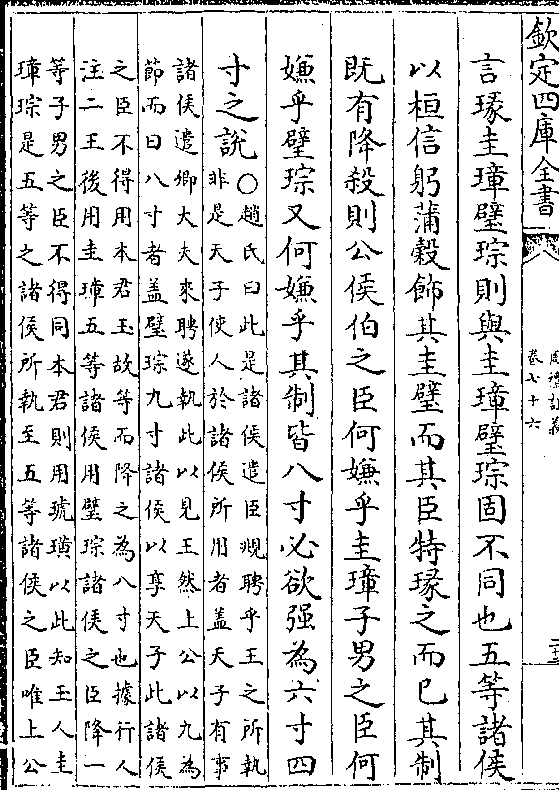 欽定四庫全書
周禮訂義
卷七十六
言瑑圭璋璧琮則與圭璋璧琮固不同也五等諸侯
以桓信躬蒲穀飾其圭璧而其臣特瑑之而已其制
既有降殺則公侯伯之臣何嫌乎圭璋子男之臣何
嫌乎璧琮又何嫌乎其制皆八寸必欲强為六寸四
寸之說○趙氏曰此是諸侯遣臣覜聘乎王之所執
非是天子使人於諸侯所用者盖天子有事
諸侯遣卿大夫來聘遂執此以見王然上公以九為
節而曰八寸者盖璧琮九寸諸侯以享天子此諸侯
之臣不得用本君玉故等而降之為八寸也據行人
注二王後用圭璋五等諸侯用璧琮諸侯之臣降一
等子男之臣不得同本君則用琥璜以此知玉人圭
璋琮是五等之諸侯所執至五等諸侯之臣唯上公